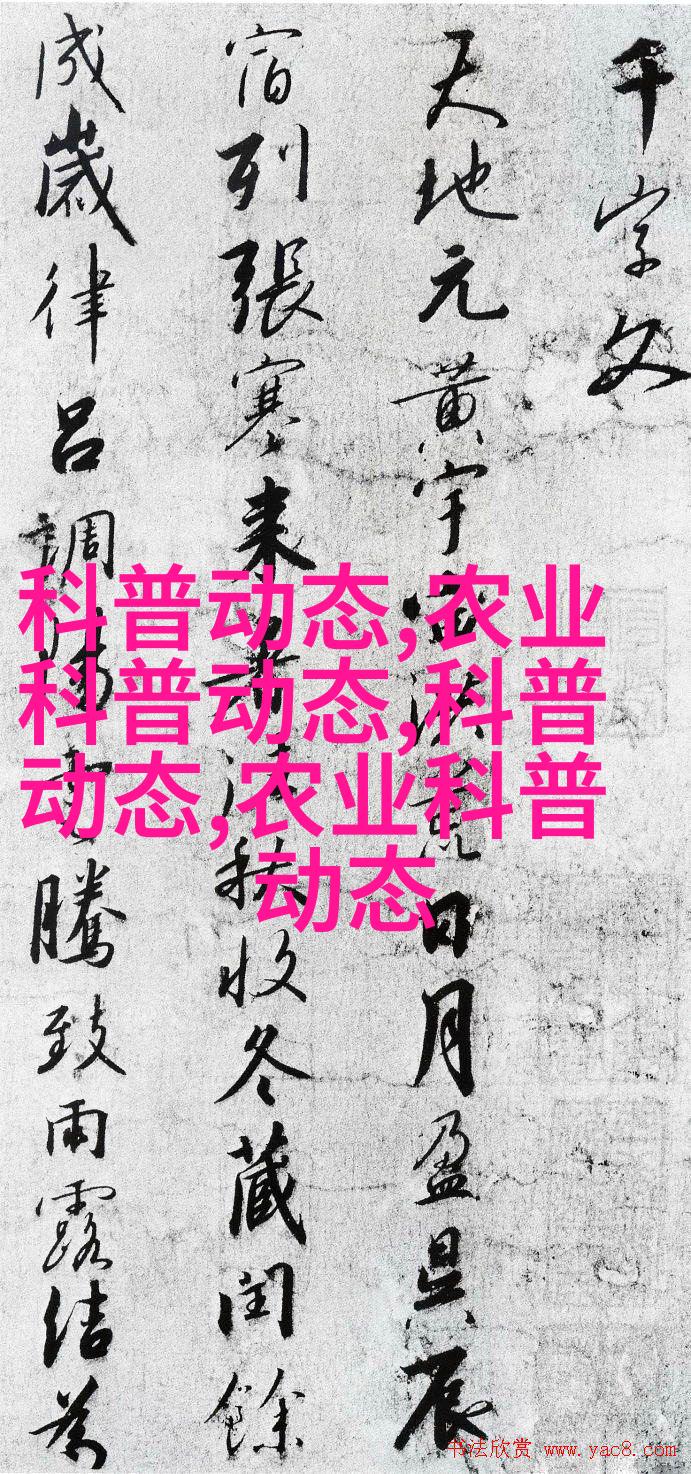 千字文
天地元黄宇宙洪荒日月盈昃辰
宿列張寒来暑往秋收冬蔵閏餘
成歲律吕調陽雲騰致雨露结為
科普动态,农业
科普动态,科普
动态,农业科普
动态
书法欣赏 www.yac8.com